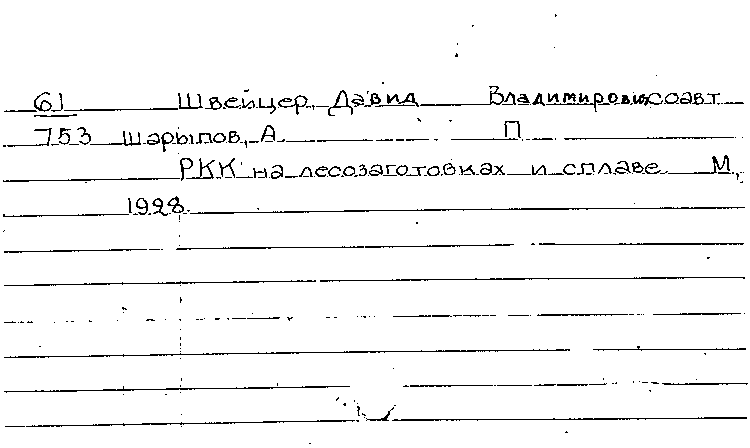 61 Швейцер, Давид Владимирович соавт
753 Шарыпов, А. П
РКК на лесозаготовках и сплаве М,
1928.